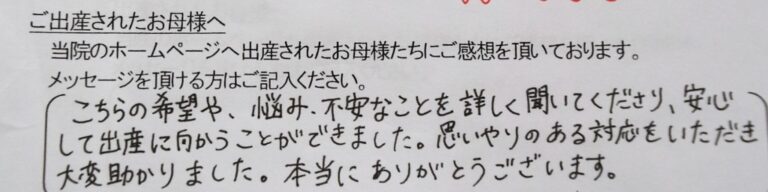 ご出産されたお母様へ
当院のホームページへ出産されたお母様たちにご感想を頂いております。
メッセージを頂ける方はご記入ください。
こちらの希望や、悩み、不安なことを詳しく聞いてくださり、安心
して出産に向かうことができました。思いやりのある対応をいただき
大変助かりました。本当にありがとうございます。